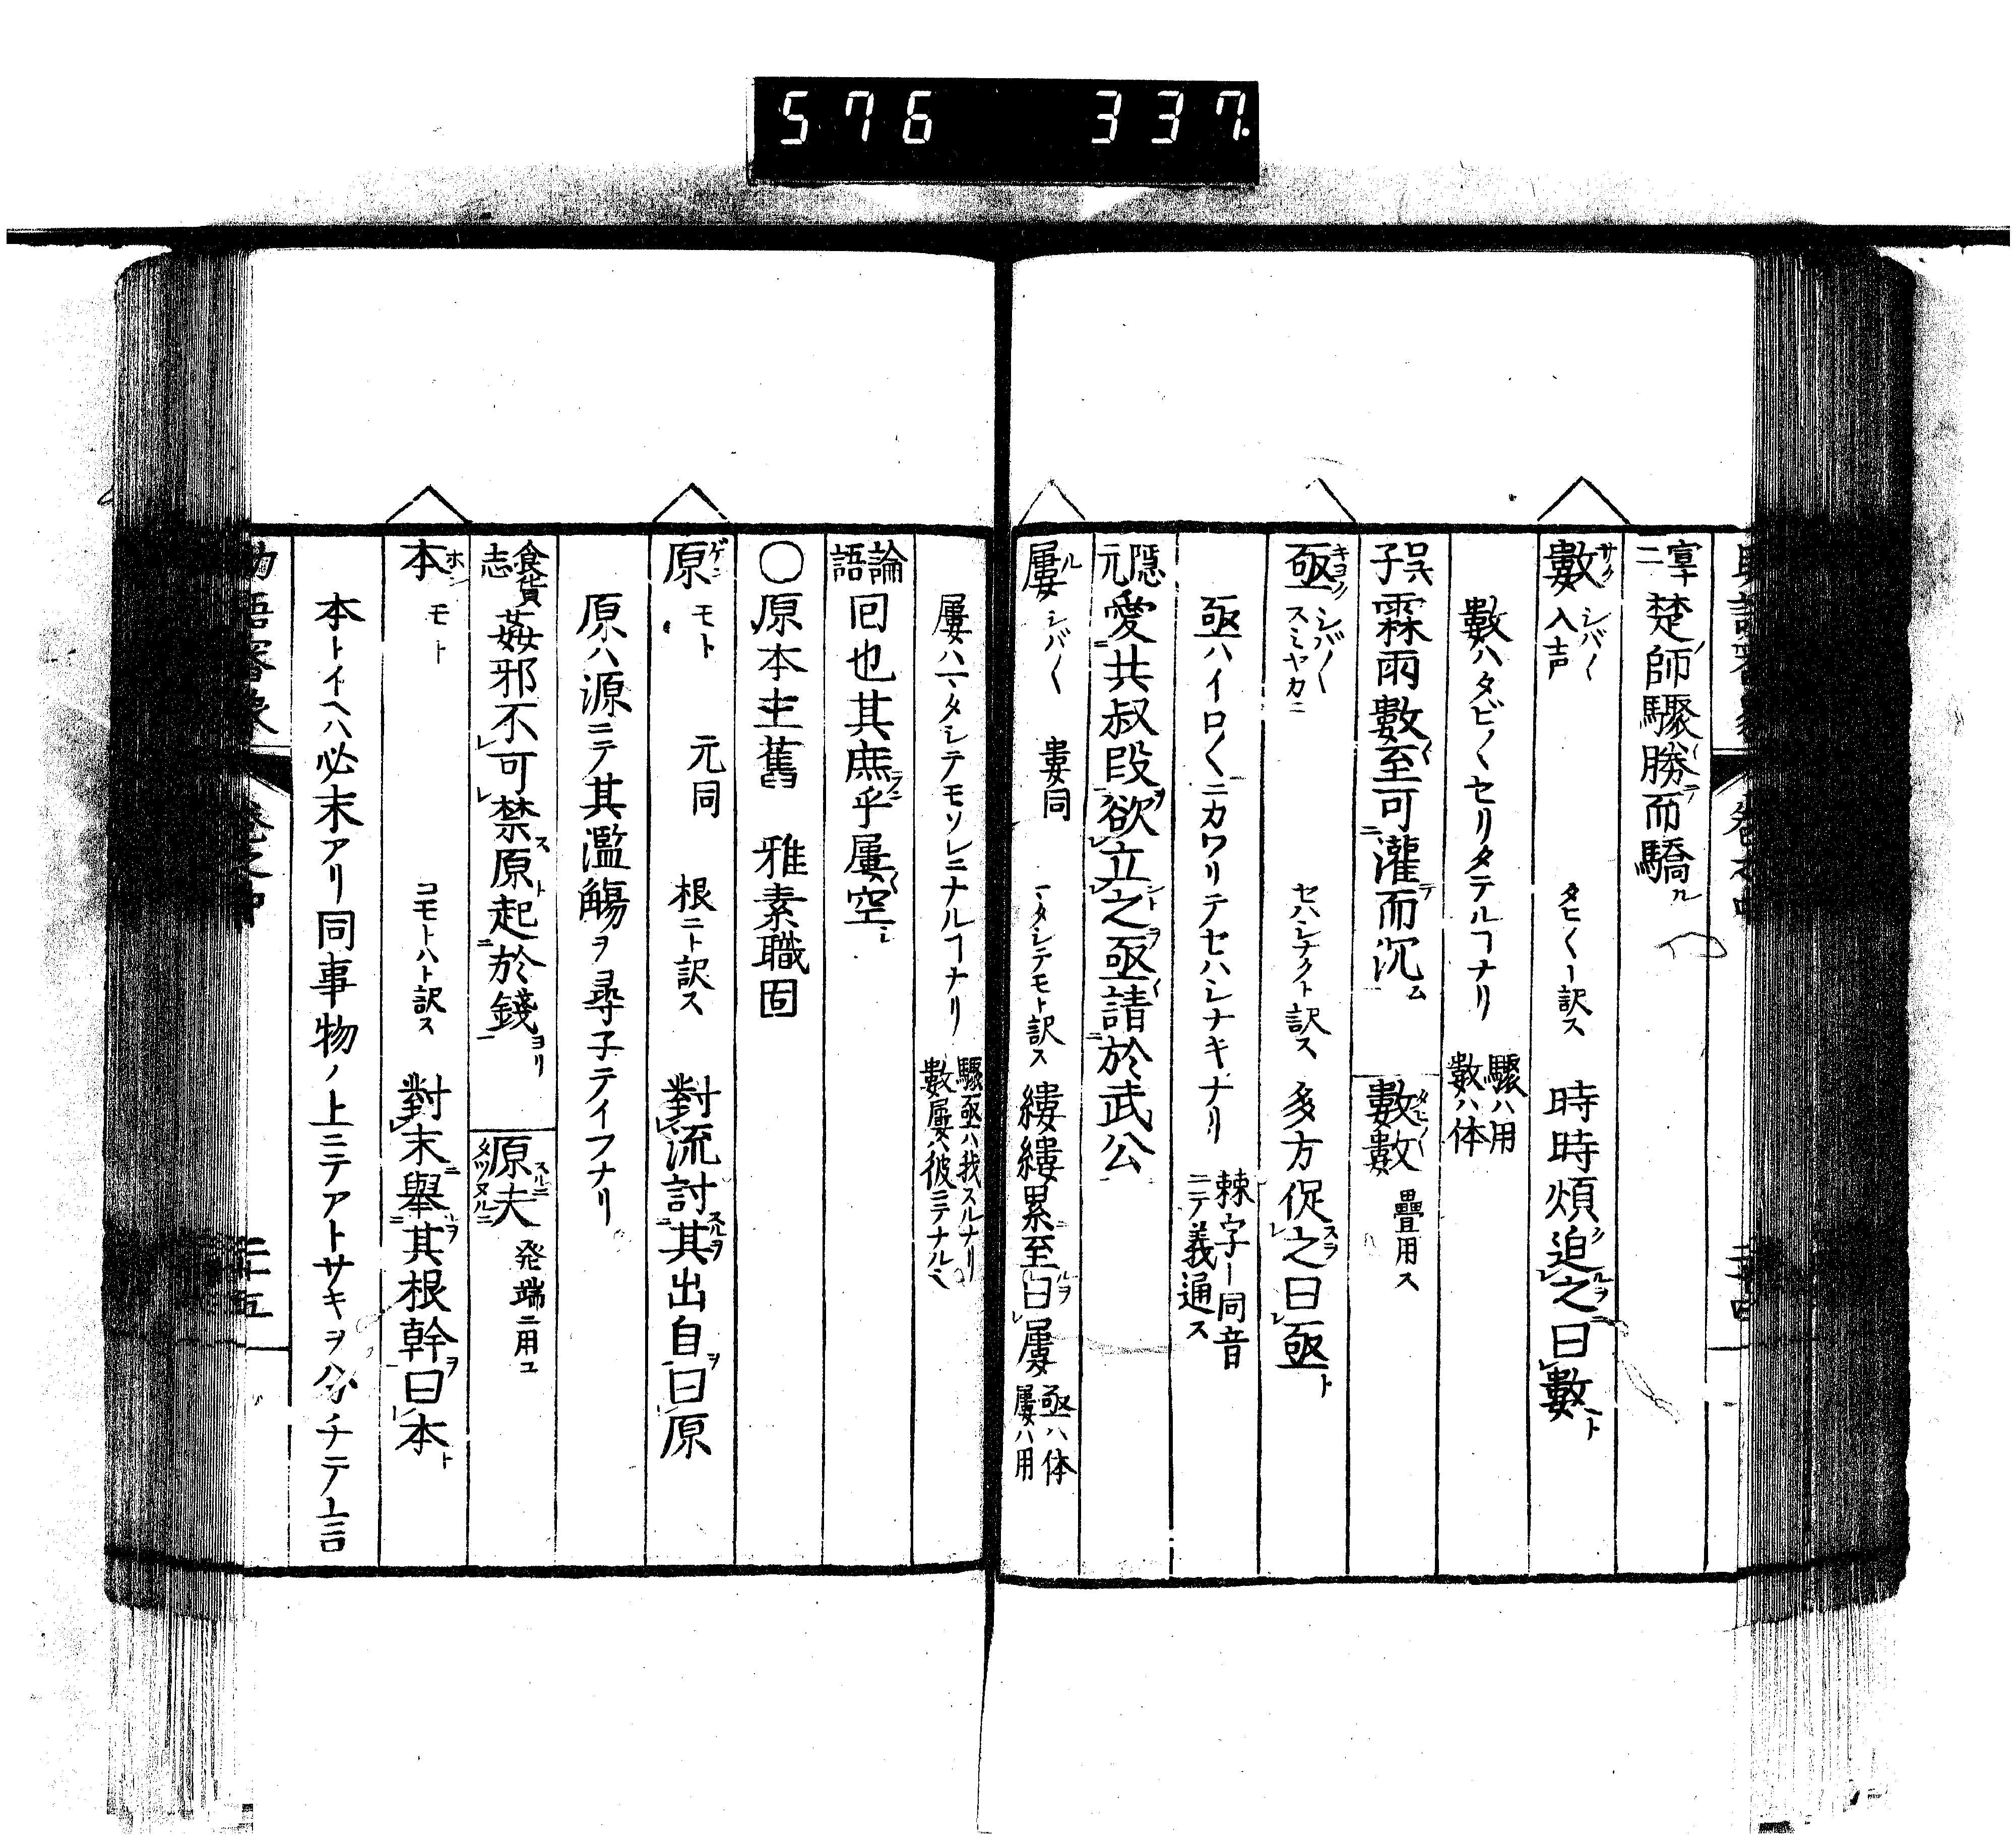 576 337.
宣十二 楚師驟勝而驕ル
數 サク シバ〱 入声 タヒ〱ト訳ス 時時煩迫之曰數ト
數ハタビ〱セリタテルヿナリ 驟ハ用 數ハ体
呉子 霖雨數至可灌而沉ム 數數 タヒ〱 疊用ス
亟 キヨク シバ〱 スミヤカニ セハシナクト訳ス 多方促之曰亟ト
亟ハイロ〱ニカワリテセハシナキナリ 棘字ト同音ニテ義通ス
隠元 愛共叔段欲立之亟請於武公
屢 ル シバ〱 婁同 マタシテモト訳ス 縷縷累至曰屢 亟ハ体 屢ハ用
屢ハマタシテモソレニナルヿナリ 驟亟ハ我スルナリ 數屢ハ彼ニテナル
論語 回也其庶乎屢空シ
〇原本主舊 雅素職固
原 ゲン モト 元同 根ニト訳ス 對流討其出自曰原
原ハ源ニテ其濫觴ヲ尋子テイフナリ
食貨志 姦邪不可禁原起於錢ヨリ 原夫 発端ニ用ユ
本 ホン モト コモトハト訳ス 對末舉其根幹曰本ト
本トイヘハ必末アリ同事物ノ上ニテアトサキヲ分チテ言
助語審象 卷之中 二十五